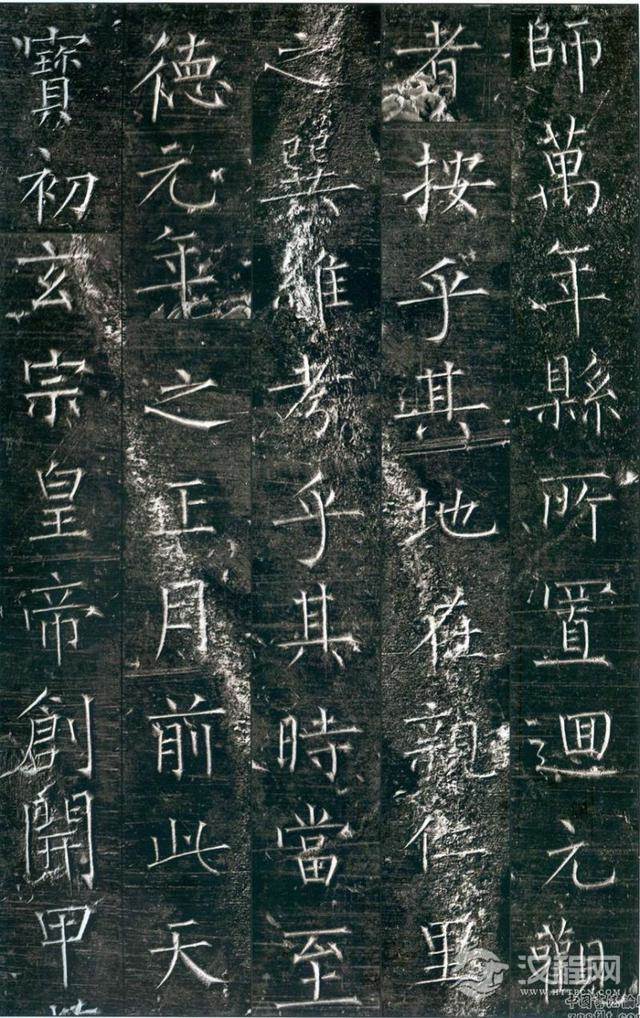 師萬年縣所置迴元觀
者按乎其地在親仁里
之巽維考乎其時當至
德元年之正月前此天
寶初玄宗皇帝創開甲
汉程网
HTTPCN.COM